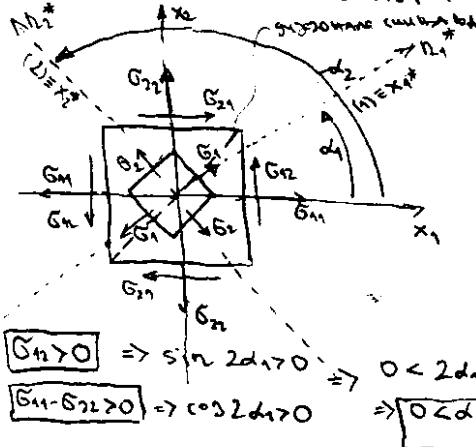 n₂*
(2)≡x₂*
x₂
n₁*
(1)≡x₁*
α₂
α₁
σ₂₂
σ₂₁
σ₂
σ₁
σ₁₂
σ₁₁
σ₁₂
σ₁
σ₂
σ₁₁
x₁
σ₂₁
σ₂₂
σ₁₂>0 => sin 2α₁>0
σ₁₁-σ₂₂>0 => cos 2α₁>0
=> 0 < 2α₁
=> 0 < α